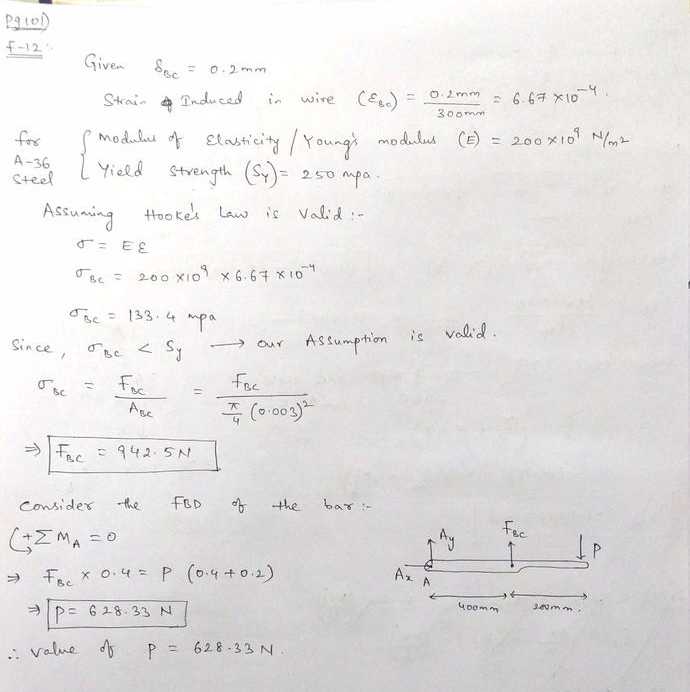 Pg 101)
F-12:-
Given δBC = 0.2mm
Strain Induced in wire (εBC) = 0.2mm / 300mm = 6.67 × 10⁻⁴.
for A-36 Steel { Modulus of Elasticity / Young's modulus (E) = 200 × 10⁹ N/m2
Yield Strength (Sy) = 250 mpa.
Assuming Hooke's Law is Valid :-
σ = Eε
σBC = 200 × 10⁹ × 6.67 × 10⁻⁴
σBC = 133.4 mpa
Since, σBC < Sy → our Assumption is valid.
σBC = FBC / ABC = FBC / π/4 (0.003)²
⇒ FBC = 942.5 N
Consider the FBD of the bar :-
+ΣMA = 0
⇒ FBC × 0.4 = P (0.4+0.2)
⇒ P = 628.33 N
∴ value of P = 628.33 N.
Ay
FBC
P
Ax A
400mm
200mm.